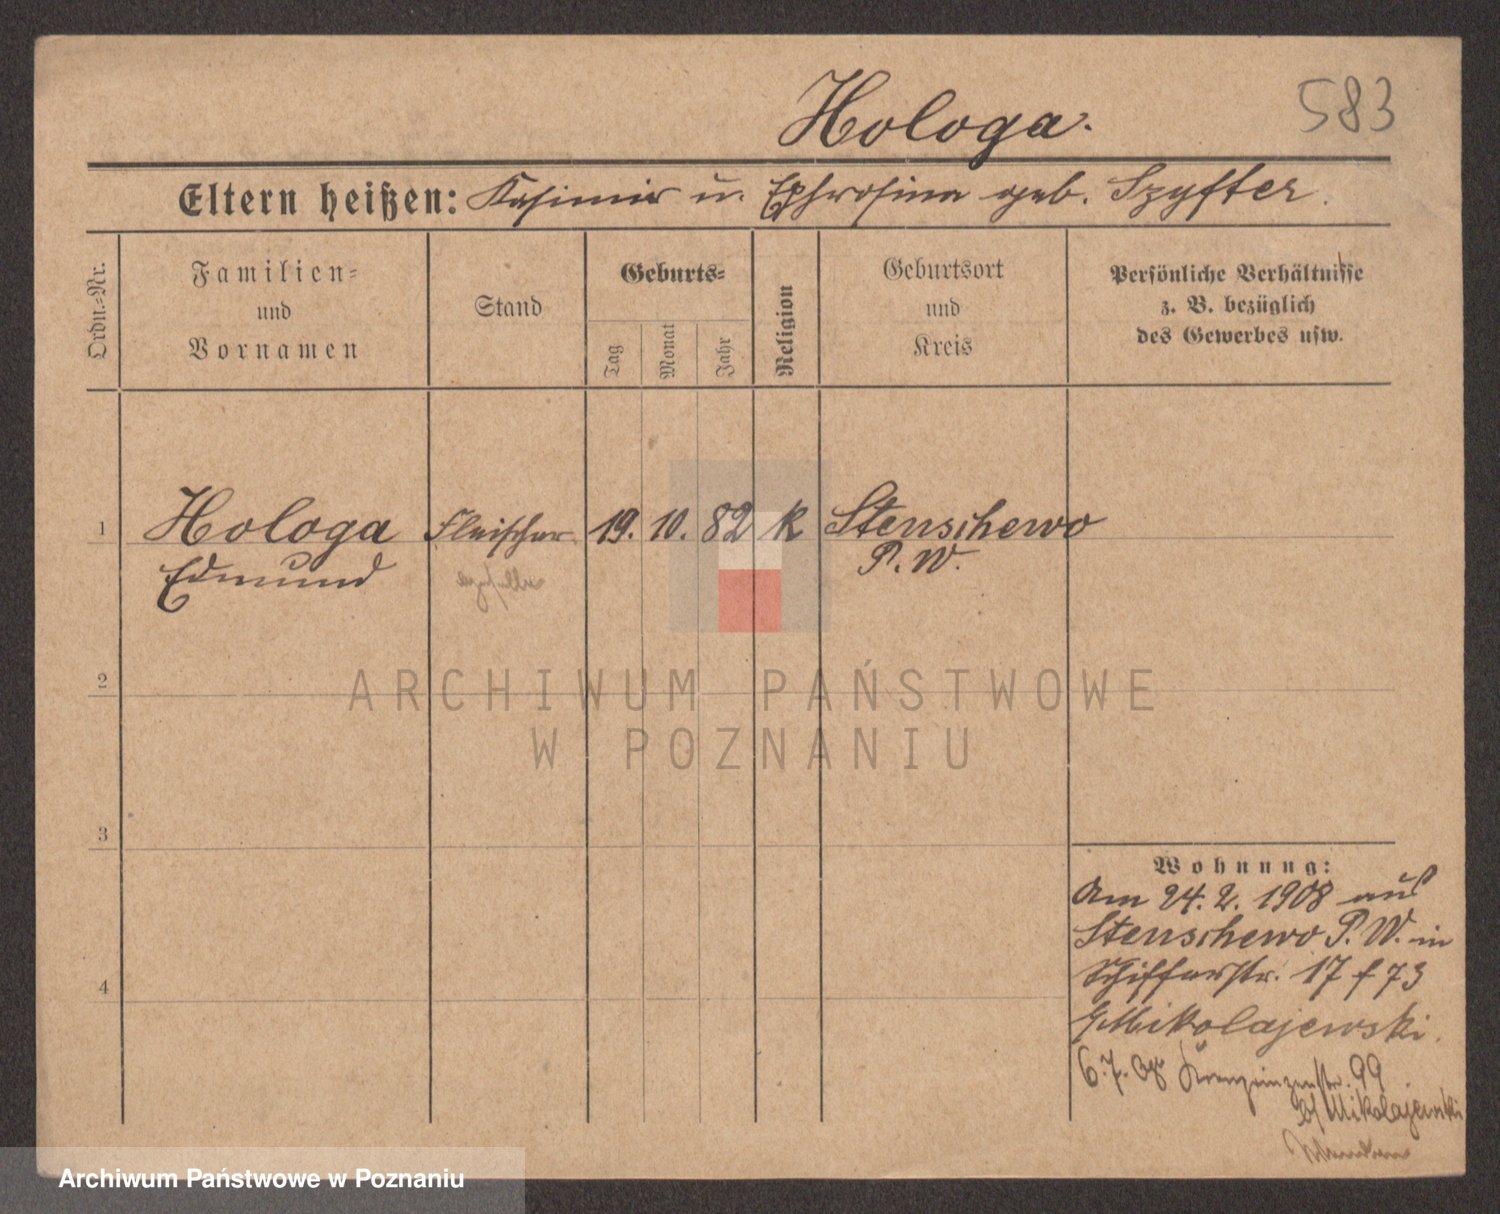 Hologa.
583
Eltern heißen: Kasimir u. Ephrosina geb. Szyfter.
Ordn.=Nr.
Familien=
und
Vornamen
Stand
Geburts=
Tag
Monat
Jahr
Religion
Geburtsort
und
Kreis
Persönliche Verhältnisse
z. B. bezüglich
des Gewerbes usw.
1 Hologa Fleischer 19. 10. 82 k Stenschewo
Edmund P. W.
geselle
2
ARCHIWUM PAŃSTWOWE
W POZNANIU
3
Wohnung:
Am 24. 2. 1908 aus
Stenschewo P. W. in
Schifferstr. 17 f 73
Mikolajewski.
4
6. 7. 08 Kronprinzenstr. 99
b/ Mikolajewski
Archiwum Państwowe w Poznaniu